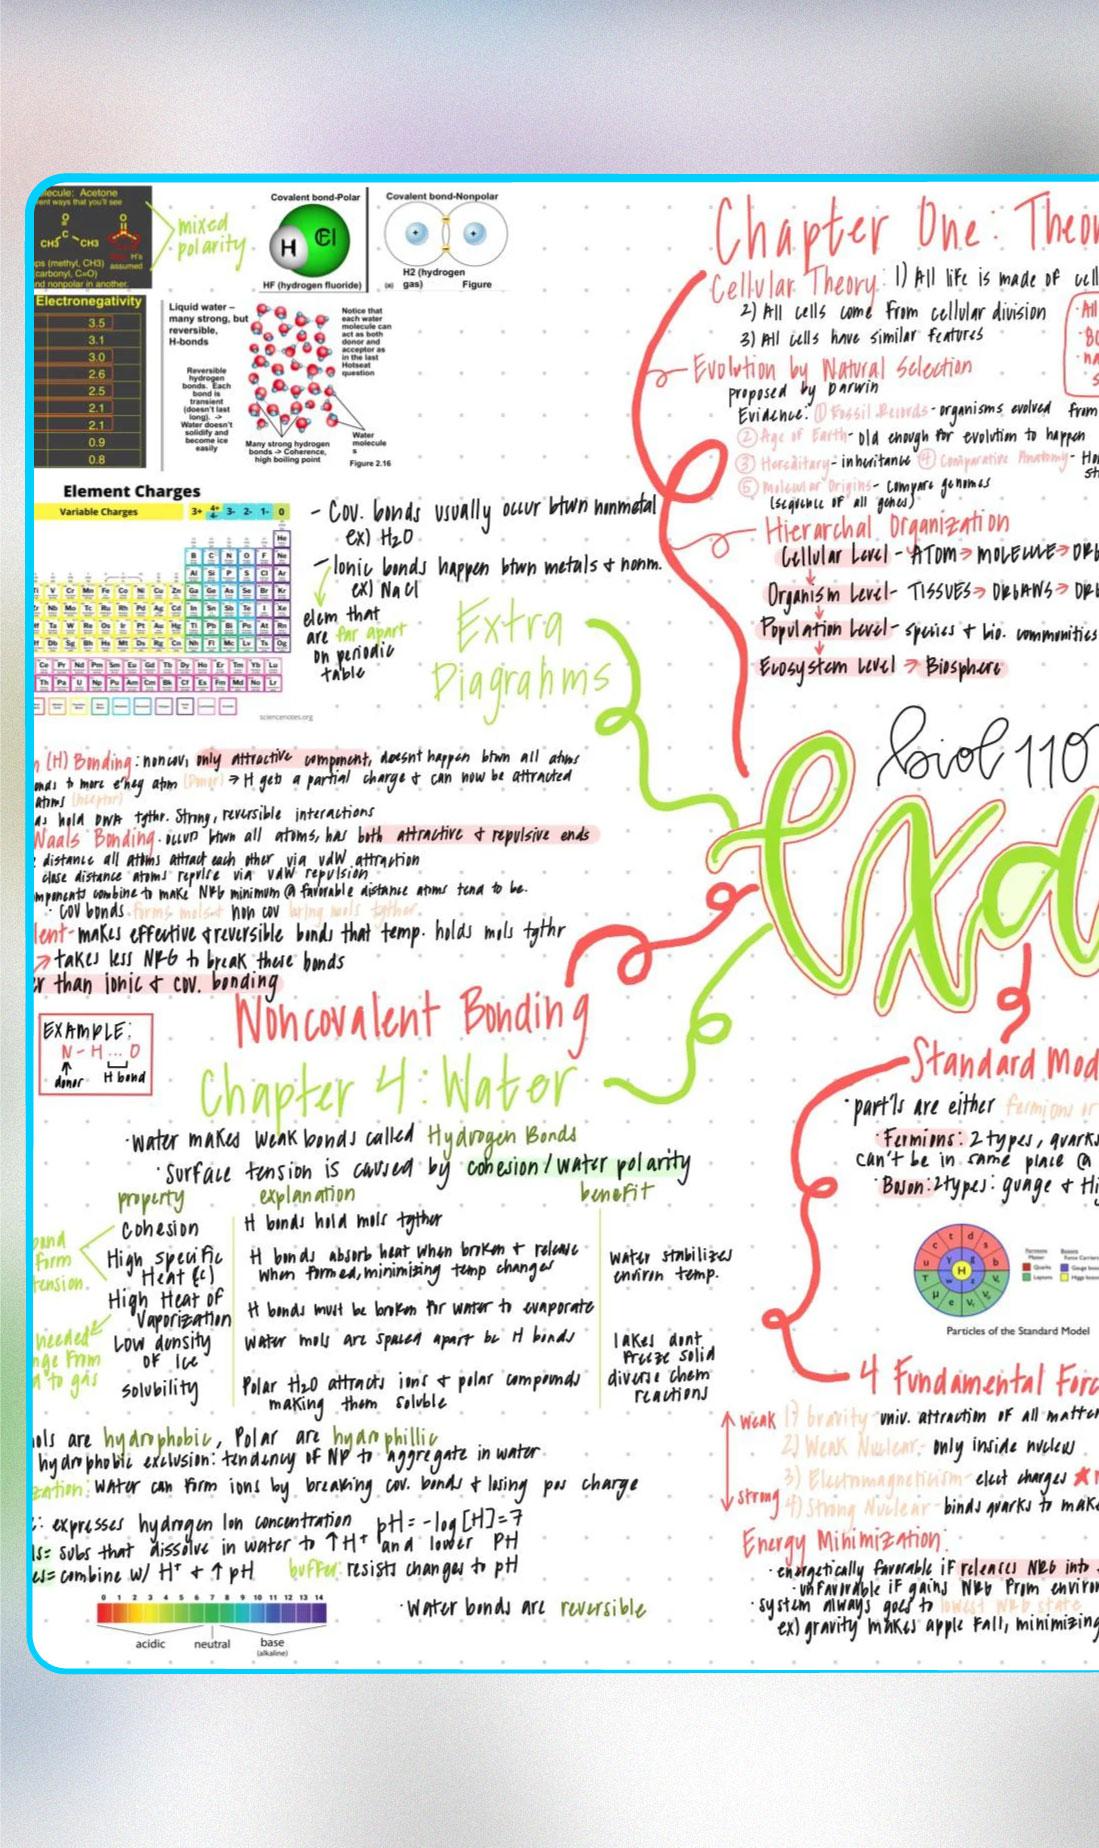 ecule: Acetone
ent ways that you'll see
O
C
CH3 CH3
O
H's
assumed
ps (methyl, CH3)
carbonyl, C=O)
nd nonpolar in another.
mixed
polarity
Covalent bond-Polar
H Cl
HF (hydrogen fluoride)
Covalent bond-Nonpolar
+ +
H2 (hydrogen
(a) gas) Figure
Electronegativity
3.5
3.1
3.0
2.6
2.5
2.1
2.1
0.9
0.8
Liquid water –
many strong, but
reversible,
H-bonds
Reversible
hydrogen
bonds. Each
bond is
transient
(doesn't last
long). ->
Water doesn't
solidify and
become ice
easily
Notice that
each water
molecule can
act as both
donor and
acceptor as
in the last
Hotseat
question
Many strong hydrogen
bonds -> Coherence,
high boiling point
Water
molecule
s
Figure 2.16
Element Charges
Variable Charges 3+ 4+ 4- 3- 2- 1- 0
He
B C N O F Ne
Al Si P S Cl Ar
V Cr Mn Fe Co Ni Cu Zn Ga Ge As Se Br Kr
Nb Mo Tc Ru Rh Pd Ag Cd In Sn Sb Te I Xe
Ta W Re Os Ir Pt Au Hg Tl Pb Bi Po At Rn
Db Sg Bh Hs Mt Ds Rg Cn Nh Fl Mc Lv Ts Og
Ce Pr Nd Pm Sm Eu Gd Tb Dy Ho Er Tm Yb Lu
Th Pa U Np Pu Am Cm Bk Cf Es Fm Md No Lr
sciencenotes.org
- Cov. bonds usually occur btwn nonmetal
ex) H2O
- Ionic bonds happen btwn metals + nonm.
ex) NaCl
elem that
are far apart
on periodic
table
Extra
Diagrahms
n (H) Bonding: noncov, only attractive component, doesnt happen btwn all atms
onds to more e'neg atm (Donor) → H gets a partial charge + can now be attracted
atms (Acceptor)
ds hold DNA tgthr. Strong, reversible interactions
Waals Bonding. occurs btwn all atoms, has both attractive + repulsive ends
distance all atoms attract each other via vdW attraction
close distance atoms repulse via vdW repulsion
mponents combine to make NRG minimum @ favorable distance atoms tend to be.
· Cov bonds forms mols + non cov bring mols tgther
lent- makes effective + reversible bonds that temp. holds mols tgthr
→ takes less NRG to break these bonds
er than ionic + cov. bonding
EXAMPLE:
N - H ... O
donor H bond
Noncovalent Bonding
Chapter 4: Water
· Water makes weak bonds called Hydrogen Bonds
· Surface tension is caused by cohesion/water polarity
property explanation benefit
Cohesion H bonds hold mols tgther
High specific Heat (c) H bonds absorb heat when broken + release
when formed, minimizing temp changes
water stabilizes
environ temp.
High Heat of
Vaporization H bonds must be broken for water to evaporate
Low density
of Ice water mols are spaced apart bc H bonds
lakes dont
freeze solid
solubility Polar H2O attracts ions + polar compounds
making them soluble
diverse chem
reactions
bond
form
tension
needed
nge from
d to gas
ols are hydrophobic, Polar are hydrophillic
hydrophobic exclusion: tendency of NP to aggregate in water
zation: Water can form ions by breaking cov. bonds + losing pos charge
: expresses hydrogen Ion concentration pH = -log [H] = 7
ds= subs that dissolve in water to ↑ H+ and lower PH
es= combine w/ H+ + ↑ pH buffer: resists changes to pH
0 1 2 3 4 5 6 7 8 9 10 11 12 13 14
acidic neutral base
(alkaline)
· Water bonds are reversible
Chapter One: Theor
Cellular Theory: 1) All life is made of cell
2) All cells come from cellular division
3) All cells have similar features
· All
· Bo
· na
s
Evolution by Natural Selection
proposed by Darwin
Evidence: ① Fossil Records - organisms evolved from
② Age of Earth - old enough for evolution to happen
③ Hereditary - inheritance ④ Comparative Anatomy - Ho
st
⑤ Molecular Origins - compare genomes
(sequence of all genes)
Hierarchal Organization
Cellular Level - ATOM → MOLECULE → ORG
Organism Level - TISSUES → ORGANS → ORG
Population Level - species + bio. communities
Ecosystem Level → Biosphere
biol 110
Exa
Standard Mod
· part'ls are either fermions or
· Fermions: 2 types, quarks
can't be in same place @
· Boson: 2 types: guage + Hi
H
Fermions
Matter
Quarks
Leptons
Bosons
Force Carriers
Gauge bos
Higgs boso
Particles of the Standard Model
4 Fundamental Forc
weak
strong
1) Gravity- univ. attraction of all matter
2) Weak Nuclear - only inside nucleus
3) Electromagneticism - elect charges ★
4) Strong Nuclear - binds quarks to make
Energy Minimization:
· energetically favorable if releases NRG into
· unfavorable if gains NRG from environ
· system always goes to lowest NRG state
ex) gravity makes apple fall, minimizing